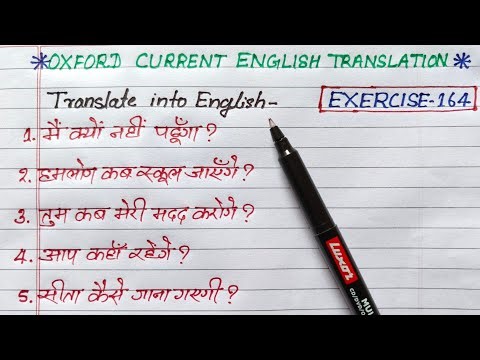 *OXFORD CURRENT ENGLISH TRANSLATION*
Translate into English-
EXERCISE-164
1. मैं क्यों नहीं पढूँगा?
2. हमलोग कब स्कूल जाएँगे?
3. तुम कब मेरी मदद करोगे?
4. आप कहाँ रहेंगे?
5. सीता कैसे गाना गाएगी?
LUXOR